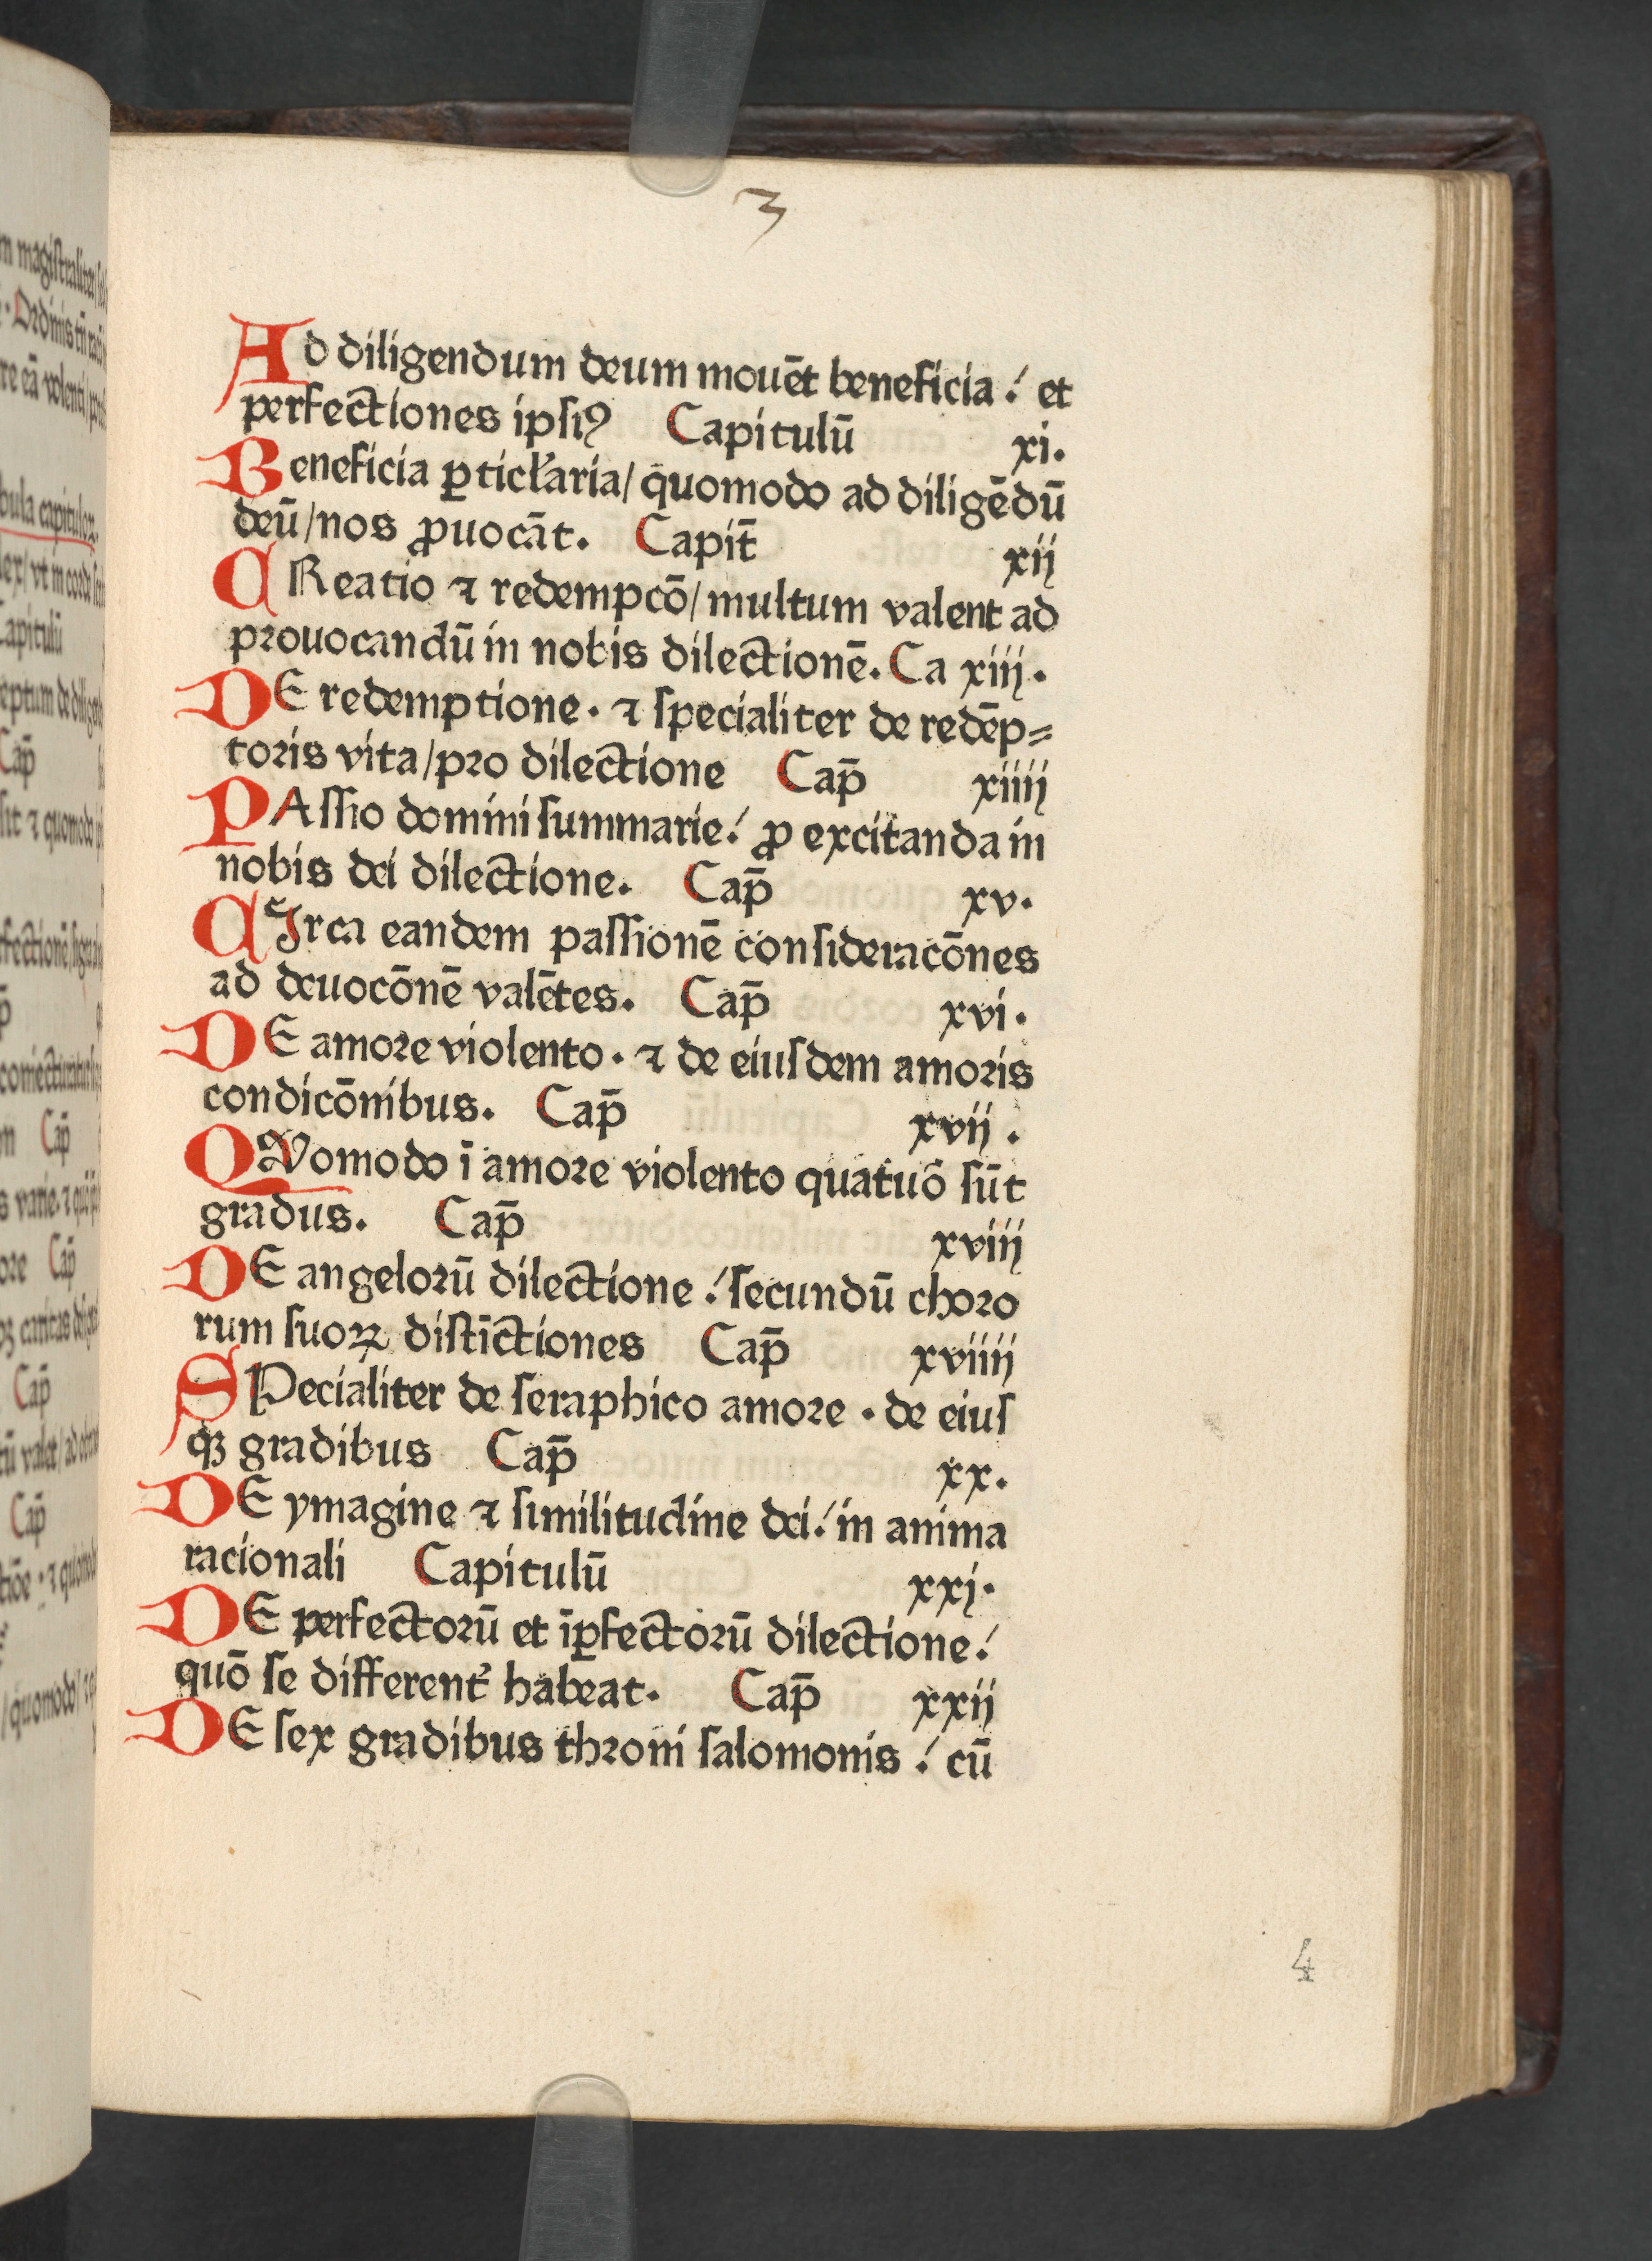 3
Ad diligendum deum mouēt beneficia ⁄. et
perfectiones ipsiꝰ Capitulū xi.
Beneficia ꝑticl'aria / quomodo ad diligēdū
deū / nos ꝓuocāt. Capit̄ xij
CReatio ⁊ redempcō / multum valent ad
prouocandū in nobis dilectionē. Ca xiij.
DE redemptione. ⁊ specialiter de redēp⸗
toris vita / pro dilectione Cap̄ xiiij
PAssio domini summarie ⁄. ꝓ excitanda in
nobis dei dilectione. Cap̄ xv.
CIrca eandem passionē consideracōnes
ad deuocōnē valētes. Cap̄ xvi.
DE amore violento. ⁊ de eiusdem amoris
condicōnibus. Cap̄ xvij.
QVomodo ī amore violento quatuō sūt
gradus. Cap̄ xviij
DE angelorū dilectione ⁄. secundū choro
rum suoꝝ distīctiones Cap̄ xviiij
SPecialiter de seraphico amore. de eius
qꝫ gradibus Cap̄ xx.
DE ymagine ⁊ similitudine dei ⁄. in anima
racionali Capitulū xxj.
DE perfectorū et īꝑfectorū dilectione ⁄.
quō se different' habeat. Cap̄ xxij
DE sex gradibus throni salomonis ⁄. cū
4